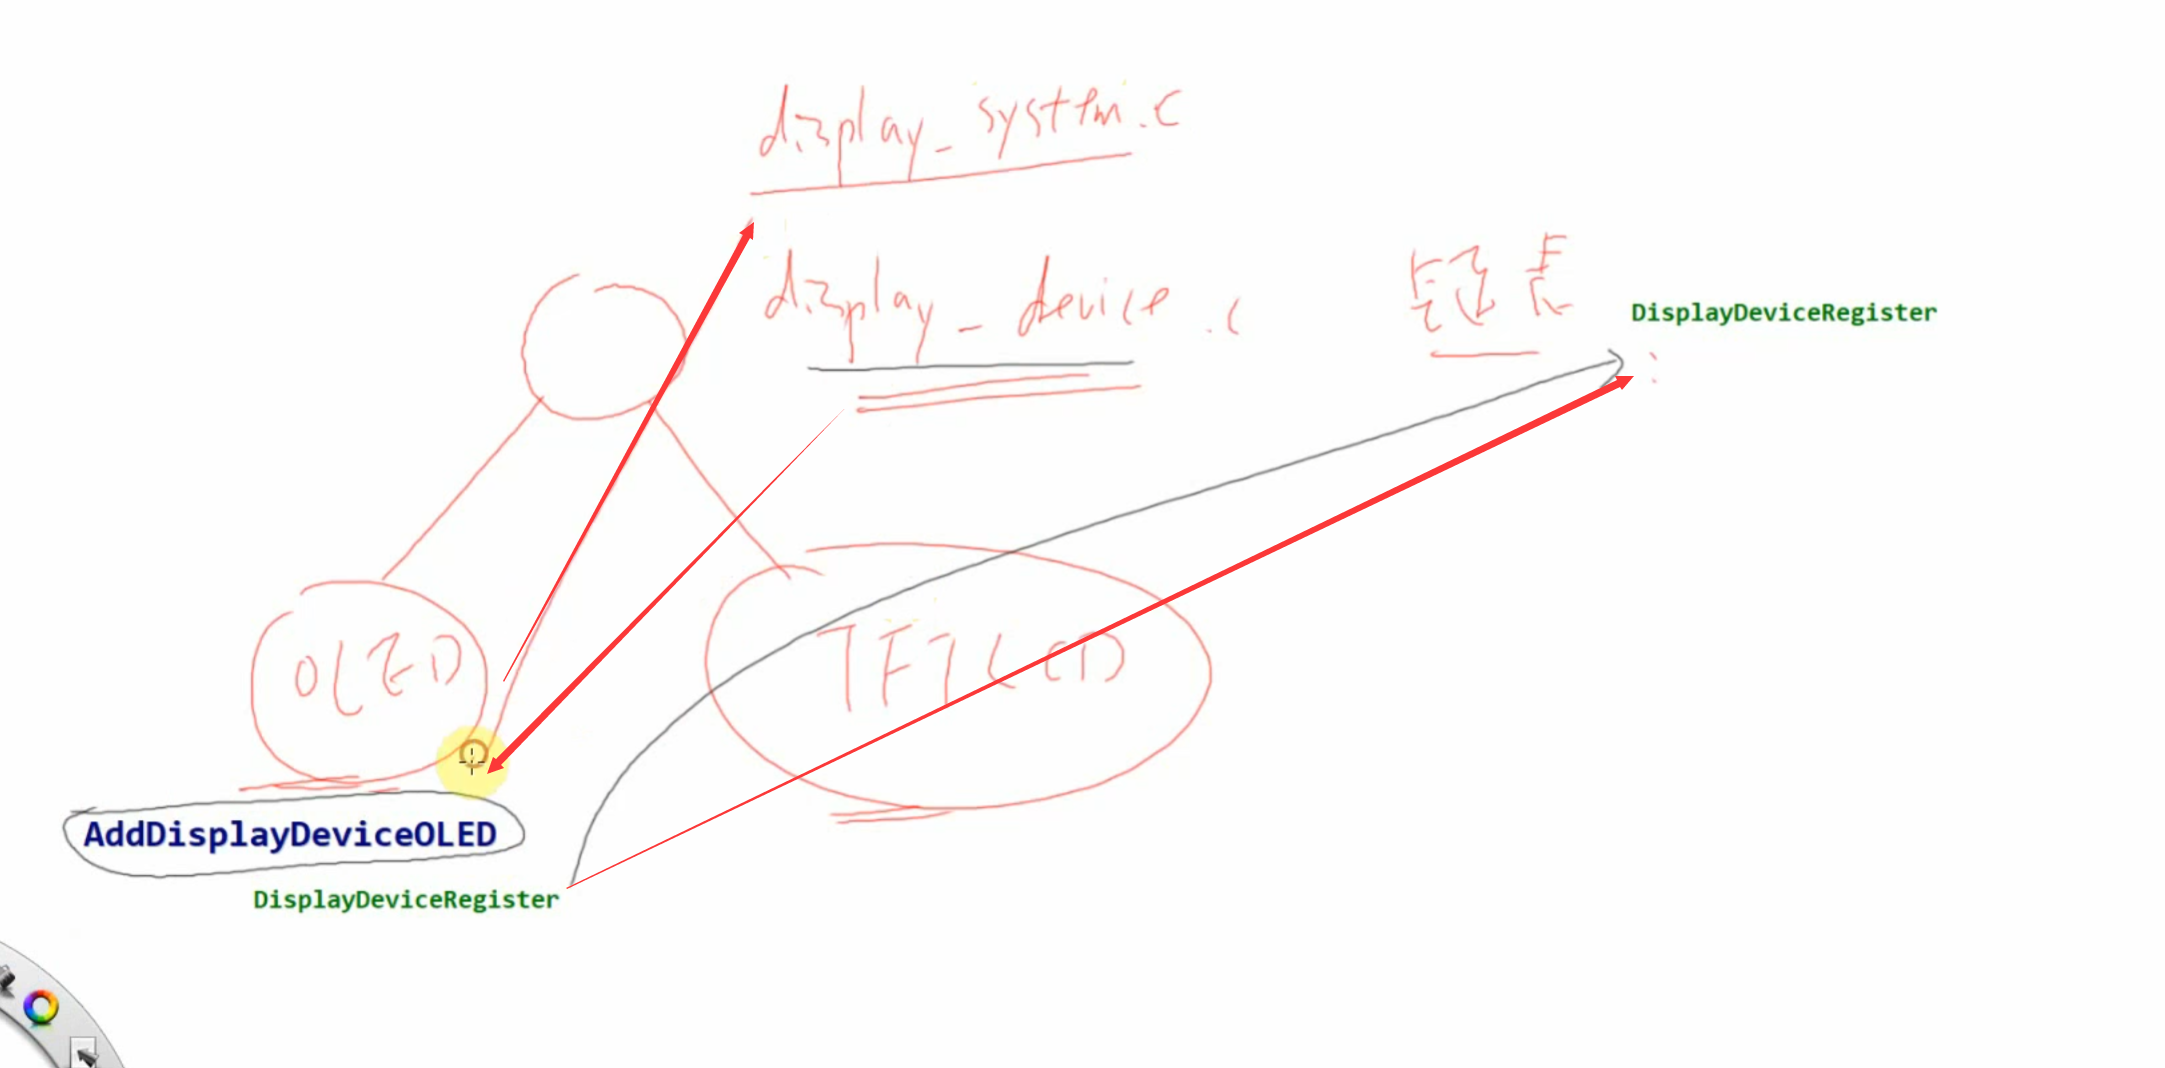 display_system.c
display_device.c
链表
DisplayDeviceRegister
OLED
TFTLCD
AddDisplayDeviceOLED
DisplayDeviceRegister